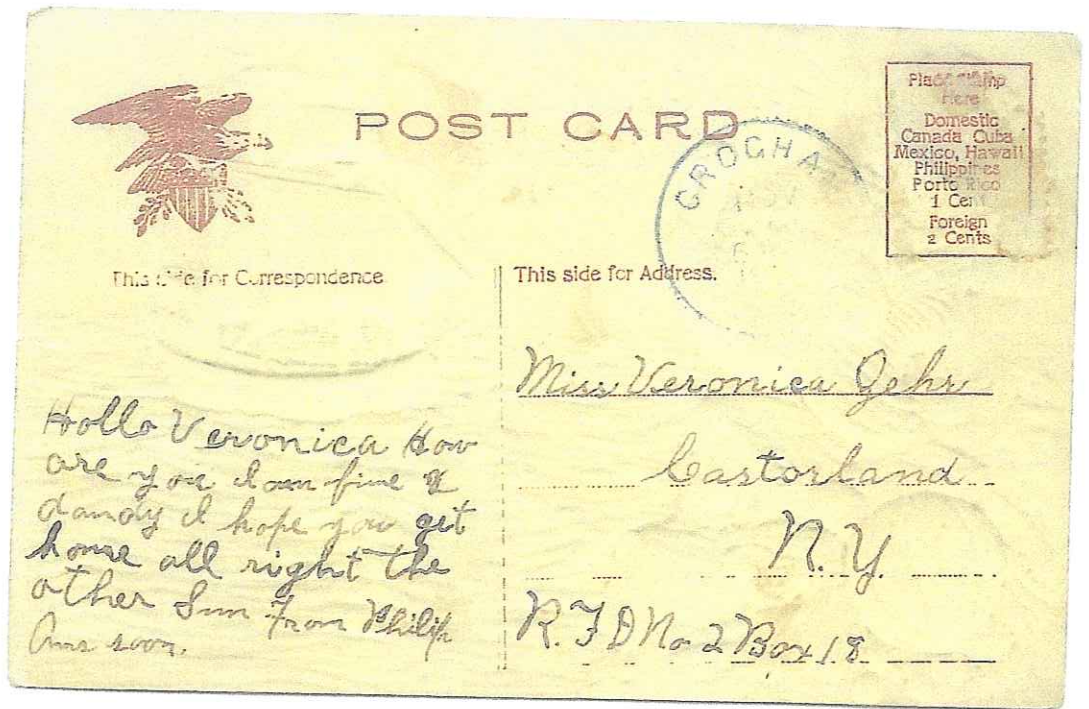 POST CARD
Place Stamp
Here
Domestic
Canada Cuba
Mexico, Hawaii
Philippines
Porto Rico
1 Cent
Foreign
2 Cents
CROGHAN
NOV
This side for Correspondence
This side for Address.
Hollo Veronica How
are you I am fine &
dandy I hope you get
home all right the
other Sun From Philip
Ans soon.
Miss Veronica Gehr
Castorland
N.Y.
R.F.D No 2 Box 18